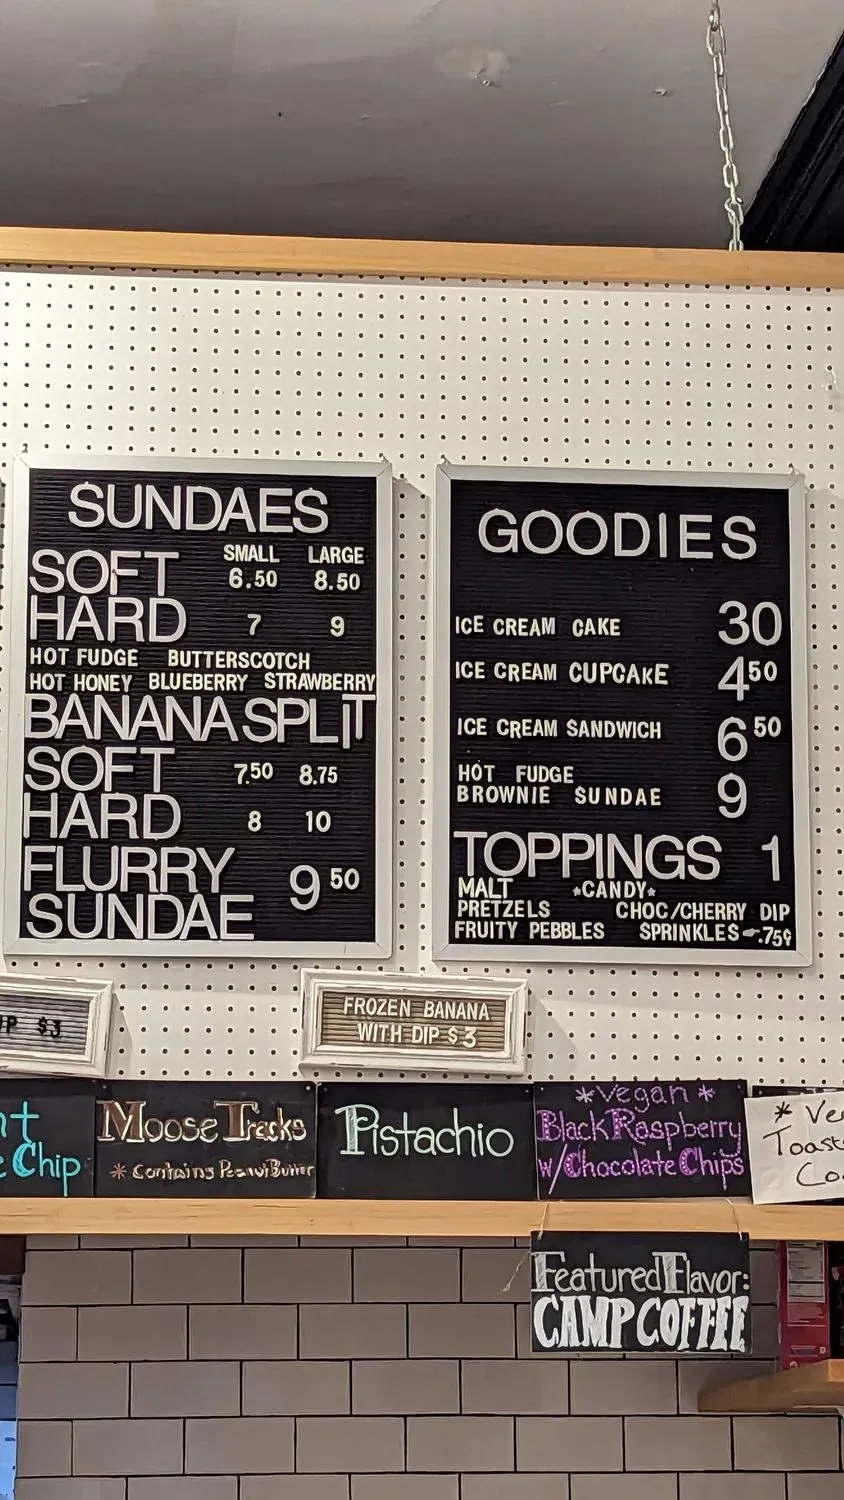 SUNDAES
SMALL LARGE
SOFT 6.50 8.50
HARD 7 9
HOT FUDGE BUTTERSCOTCH
HOT HONEY BLUEBERRY STRAWBERRY
BANANA SPLiT
SOFT 7.50 8.75
HARD 8 10
FLURRY
SUNDAE 9 50
GOODIES
ICE CREAM CAKE 30
ICE CREAM CUPCAKE 4 50
ICE CREAM SANDWICH 6 50
HOT FUDGE
BROWNIE SUNDAE 9
TOPPINGS 1
MALT *CANDY*
PRETZELS CHOC/CHERRY DIP
FRUITY PEBBLES SPRINKLES .75¢
$3
FROZEN BANANA
WITH DIP $3
Chip
Moose Tracks
* Contains Peanut Butter
Pistachio
*Vegan*
Black Raspberry
w/Chocolate Chips
Featured Flavor:
CAMP COFFEE